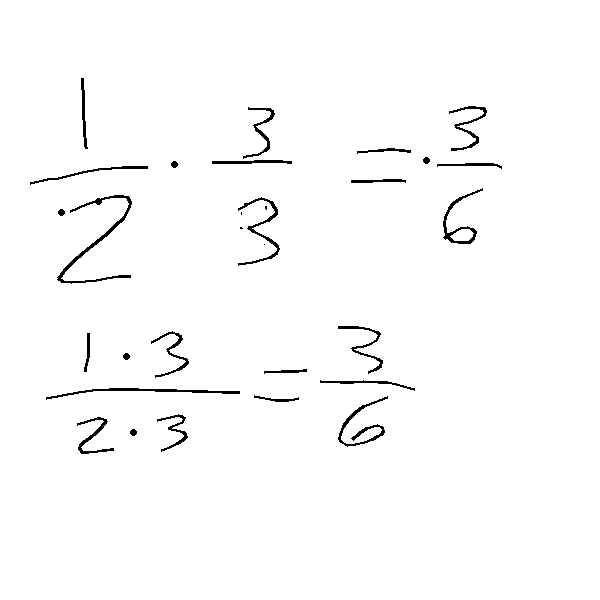 1/2 · 3/3 = 3/6
1·3/2·3 = 3/6